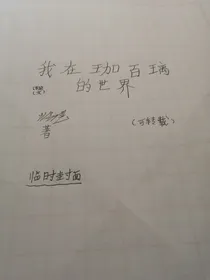 我在珈百璃
的世界
著
(可转载)
临时封面